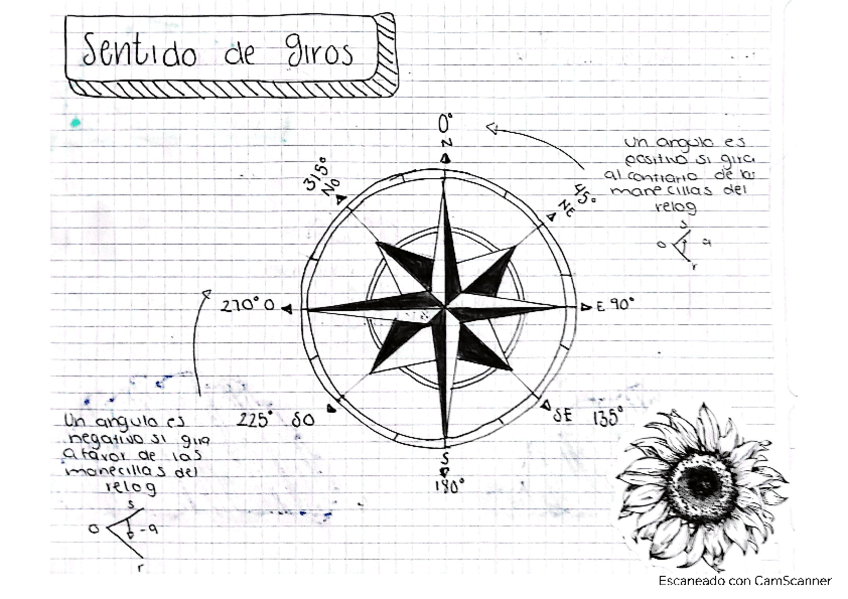 Sentido de giros
0°
N
315°
NO
45°
NE
Un angulo es
positivo si gira
al contrario de las
manecillas del
relog
s
o a
r
270° O
E 90°
225° SO
SE 135°
S
180°
Un angulo es
negativo si gira
a favor de las
manecillas del
relog
s
o -a
r
Escaneado con CamScanner